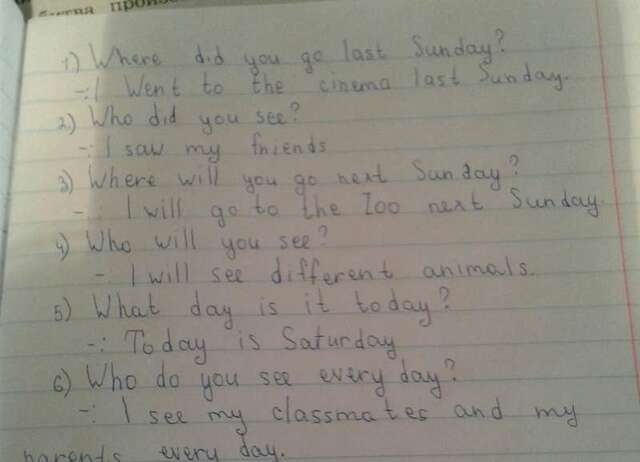 буква
1) Where did you go last Sunday?
-: I Went to the cinema last Sunday.
2) Who did you see?
-: I saw my friends
3) Where will you go next Sunday?
-: I will go to the Zoo next Sunday.
4) Who will you see?
- I will see different animals.
5) What day is it today?
-: Today is Saturday
6) Who do you see every day?
-: I see my classmates and my
parents every day.